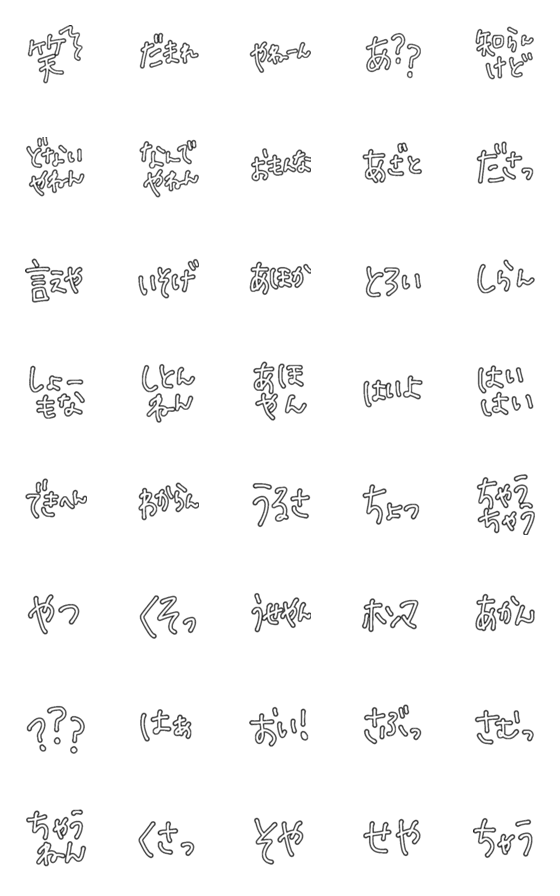 笑そ
だまれ
やねーん
あ??
知らん
けど
どない
やねーん
なんで
やねーん
おもんな
あざと
ださっ
言えや
いそげ
あほか
とろい
しらん
しょー
もな
しとん
ねーん
あほ
やん
はいよ
はい
はい
できへん
わからん
うるさ
ちょっ
ちゃう
ちゃう
やつ
くそっ
うせやん
ホンマ
あかん
???
はぁ
おい!
さぶっ
さむっ
ちゃう
ねーん
くさっ
そや
せや
ちゃう